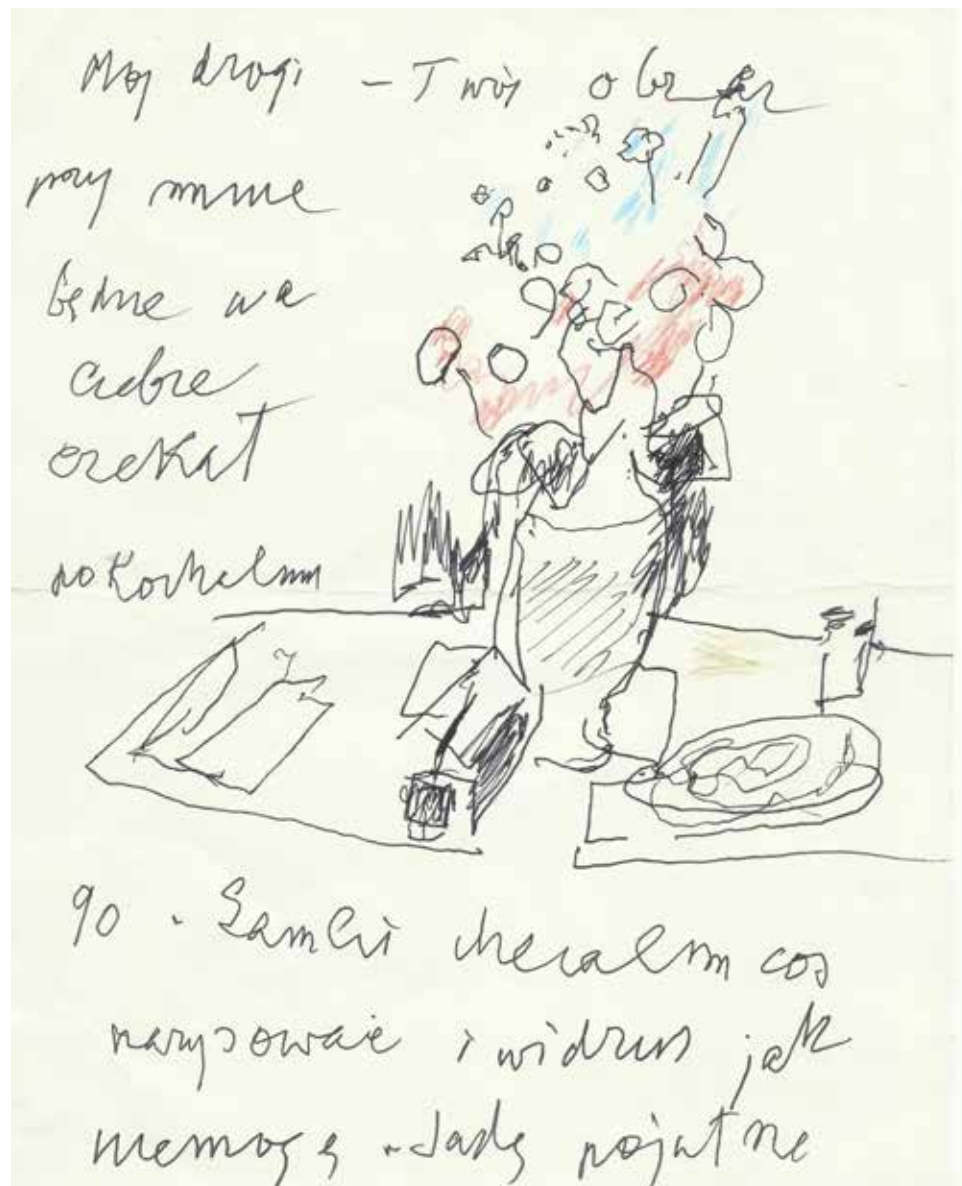 Mój drogi – Twój obraz
przy mnie
będzie na
Ciebie
czekał
pokochałem
go. Zamiast chciałem coś
narysować i widzisz jak
nie mogę – Jadę pojutrze